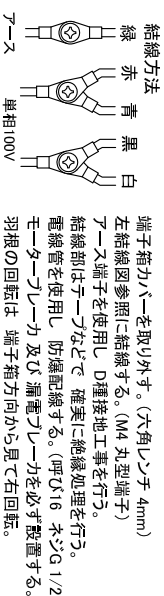 結線方法
緑 赤 青 黒 白
アース 単相100V
端子箱カバーを取り外す。(六角レンチ 4mm)
左結線図参照に結線する。(M4 丸型端子)
アース端子を使用し D種接地工事を行う。
結線部はテープなどで 確実に絶縁処理を行う。
電線管を使用し 防爆配線する。(呼び16 ネジG 1/2
モーターブレーカ 及び 漏電ブレーカを必ず設置する。
羽根の回転は 端子箱方向から見て右回転。